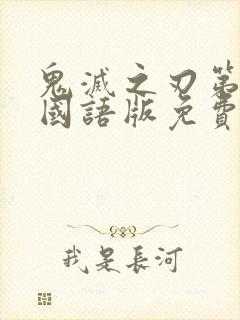 鬼滅之刃第
國語版免費
我是長河